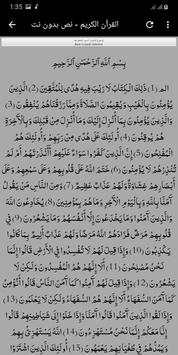 1:35
85%
القرآن الكريم - نص بدون نت
بِسْمِ اللَّهِ الرَّحْمَنِ الرَّحِيمِ
الم (1) ذَلِكَ الْكِتَابُ لَا رَيْبَ فِيهِ هُدًى لِلْمُتَّقِينَ (2) الَّذِينَ
يُؤْمِنُونَ بِالْغَيْبِ وَيُقِيمُونَ الصَّلَاةَ وَمِمَّا رَزَقْنَاهُمْ يُنْفِقُونَ (3)
وَالَّذِينَ يُؤْمِنُونَ بِمَا أُنْزِلَ إِلَيْكَ وَمَا أُنْزِلَ مِنْ قَبْلِكَ وَبِالْآخِرَةِ
هُمْ يُوقِنُونَ (4) أُولَئِكَ عَلَى هُدًى مِنْ رَبِّهِمْ وَأُولَئِكَ هُمُ
الْمُفْلِحُونَ (5) إِنَّ الَّذِينَ كَفَرُوا سَوَاءٌ عَلَيْهِمْ أَأَنْذَرْتَهُمْ أَمْ لَمْ
تُنْذِرْهُمْ لَا يُؤْمِنُونَ (6) خَتَمَ اللَّهُ عَلَى قُلُوبِهِمْ وَعَلَى سَمْعِهِمْ وَعَلَى
أَبْصَارِهِمْ غِشَاوَةٌ وَلَهُمْ عَذَابٌ عَظِيمٌ (7) وَمِنَ النَّاسِ مَنْ يَقُولُ
آمَنَّا بِاللَّهِ وَبِالْيَوْمِ الْآخِرِ وَمَا هُمْ بِمُؤْمِنِينَ (8) يُخَادِعُونَ اللَّهَ
وَالَّذِينَ آمَنُوا وَمَا يَخْدَعُونَ إِلَّا أَنْفُسَهُمْ وَمَا يَشْعُرُونَ (9) فِي
قُلُوبِهِمْ مَرَضٌ فَزَادَهُمُ اللَّهُ مَرَضًا وَلَهُمْ عَذَابٌ أَلِيمٌ بِمَا كَانُوا
يَكْذِبُونَ (10) وَإِذَا قِيلَ لَهُمْ لَا تُفْسِدُوا فِي الْأَرْضِ قَالُوا إِنَّمَا
نَحْنُ مُصْلِحُونَ (11) أَلَا إِنَّهُمْ هُمُ الْمُفْسِدُونَ وَلَكِنْ لَا
يَشْعُرُونَ (12) وَإِذَا قِيلَ لَهُمْ آمِنُوا كَمَا آمَنَ النَّاسُ قَالُوا أَنُؤْمِنُ
كَمَا آمَنَ السُّفَهَاءُ أَلَا إِنَّهُمْ هُمُ السُّفَهَاءُ وَلَكِنْ لَا يَعْلَمُونَ (13)
وَإِذَا لَقُوا الَّذِينَ آمَنُوا قَالُوا آمَنَّا وَإِذَا خَلَوْا إِلَى شَيَاطِينِهِمْ